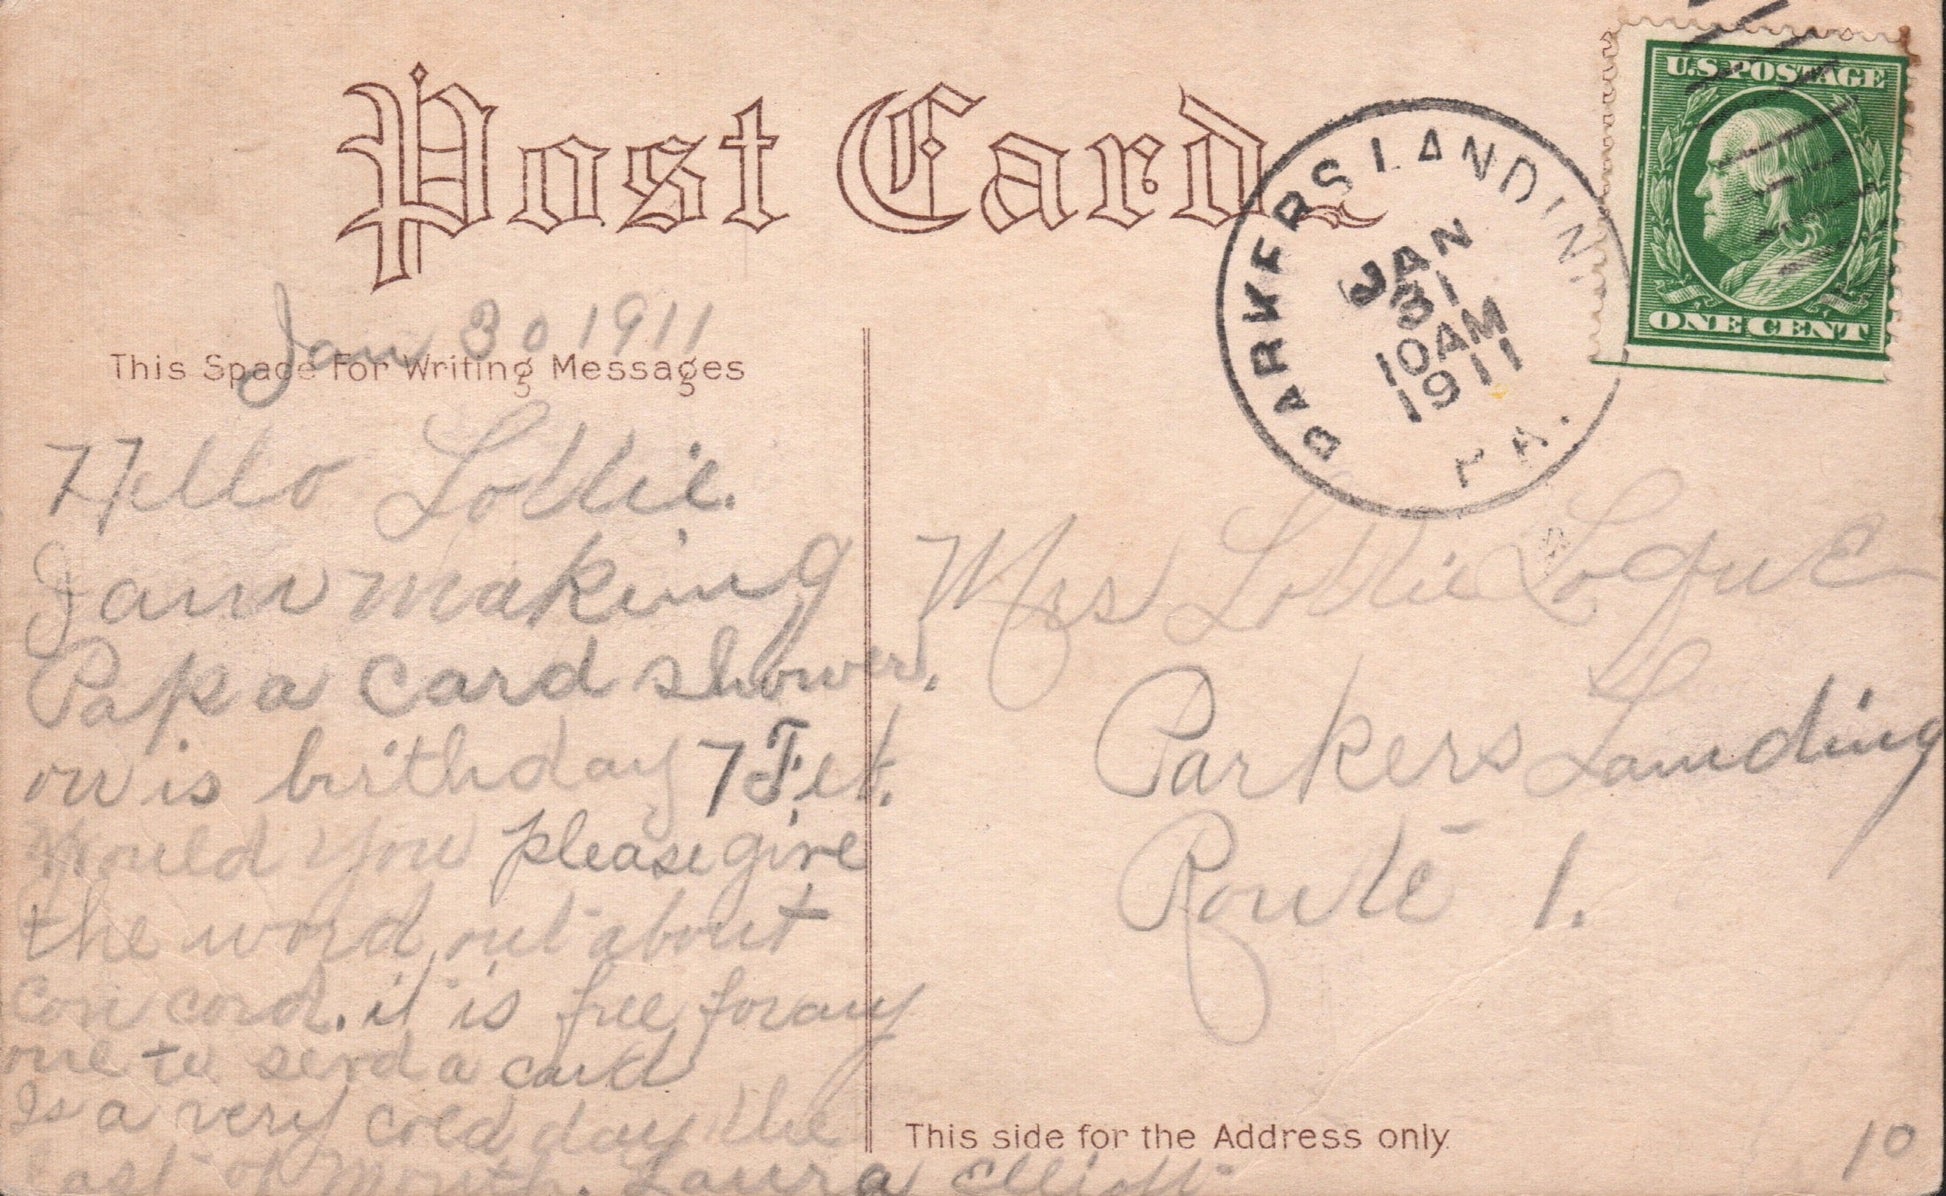 Post Card
U.S. POSTAGE
ONE CENT
PARKERS LANDIN
PA.
JAN
31
10AM
1911
Jan 30 1911
This Space For Writing Messages
Hello Lottie.
I am making
Papa card shower,
on is birthday 7 Feb.
Would you please give
the word out about
Con cord. it is free for any
one to send a card
Is a very cold day the
last of month. Laura Elliott
Mrs Lottie Logue
Parkers Landing
Route 1.
This side for the Address only
10